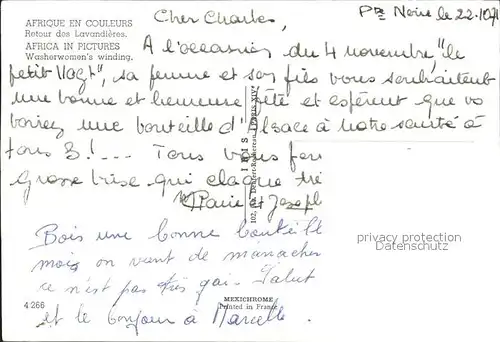 AFRIQUE EN COULEURS
Retour des Lavandières.
AFRICA IN PICTURES
Washerwomen's winding.
Pte Noire le 22.10.71
Cher Charles,
A l'occasion du 4 novembre, "le
petit Vogt", sa femme et son fils vous souhaitent
une bonne et heureuse fête et espèrent que vous
boirez une bouteille d'Alsace à notre santé à
tous 3!... Tous vous fer
Grosse bise qui claque
Marie et Joseph
IRIS
102, Av. Denfert-Rochereau, PARIS XIV
Bois une bonne bouteille
mois on vient de
ce n'est pas très gai. Salut
et le bonjour à Marcelle.
4266
MEXICHROME
Printed in France
privacy protection
Datenschutz